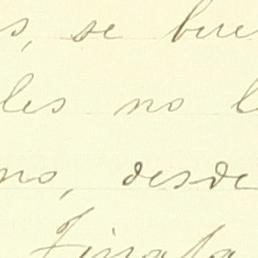 s, se bue
les no l
no, desde
Finala